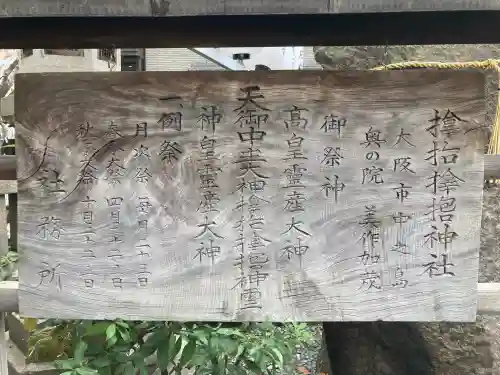 捨拾捨招神社
大阪市中之島
奥の院　美作加茂
御祭神
高皇霊産大神
天御中主大神
神皇霊産大神
一、例祭
月次祭　毎月二十三日
春季大祭　四月二十二日
秋季大祭　十月二十二日
社務所